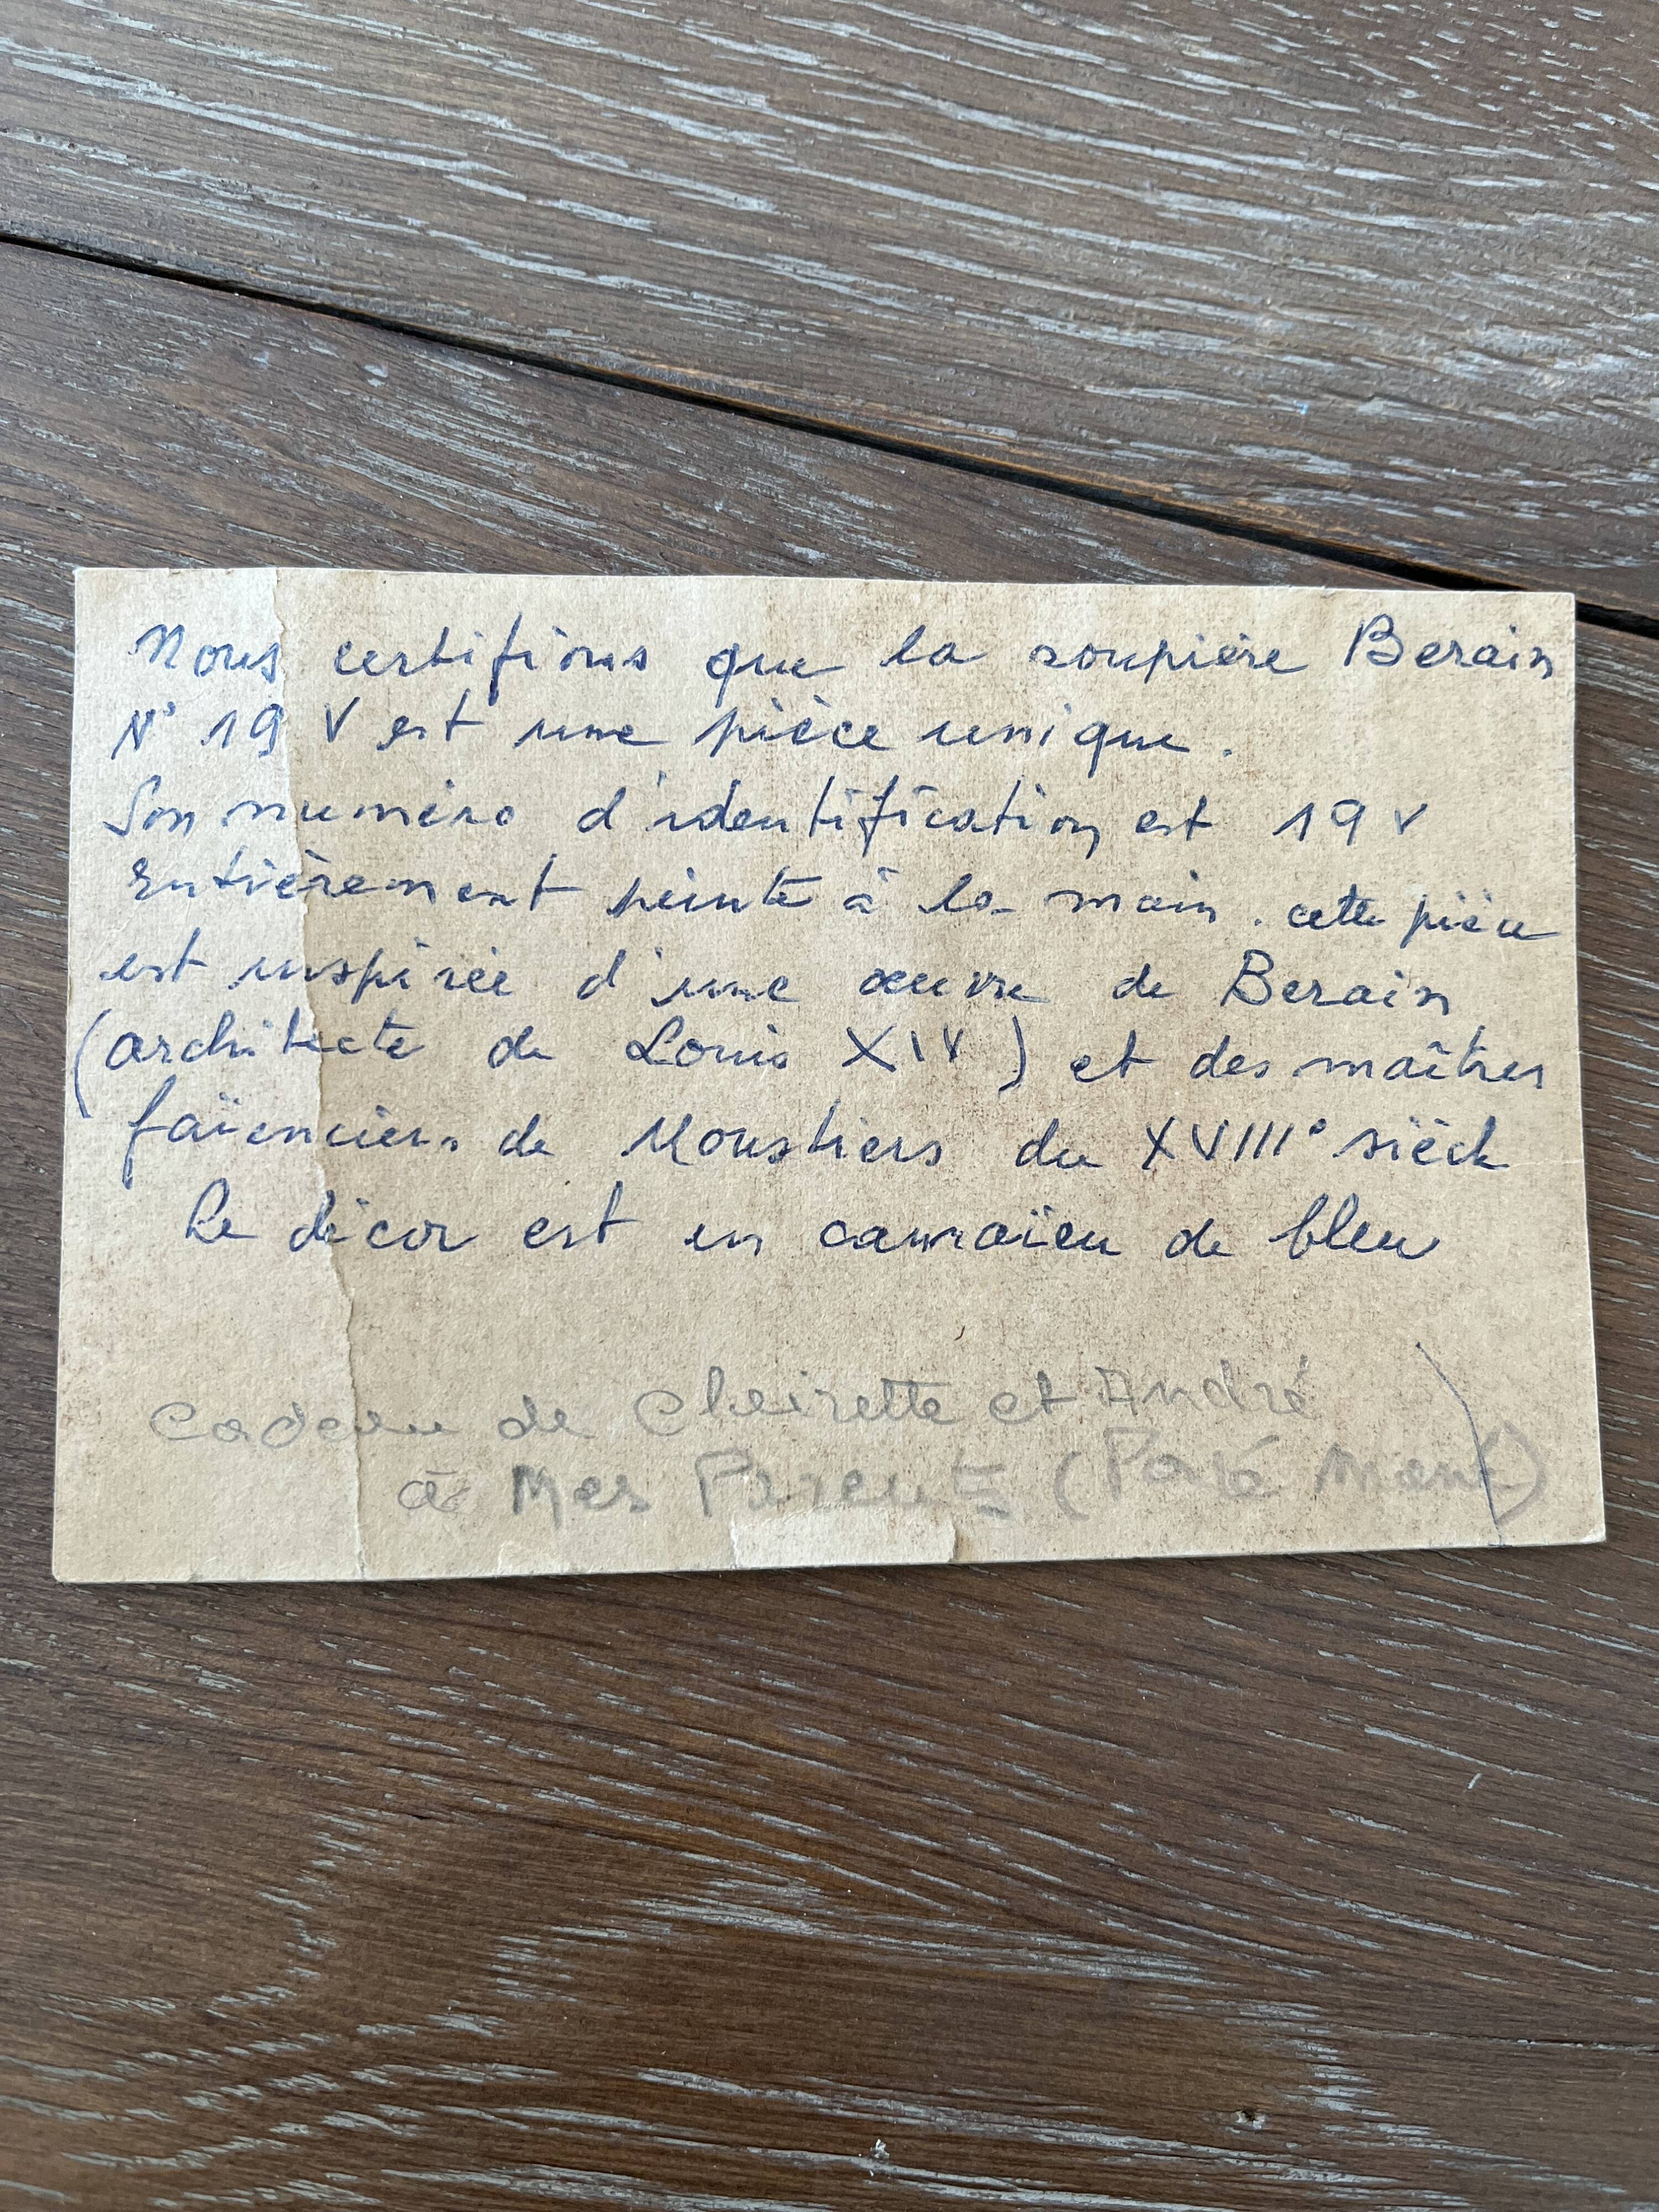 Nous certifions que la soupière Berain
N° 19 V est une pièce unique.
Son numéro d'identification est 19 V
Entièrement peinte à la main. cette pièce
est inspirée d'une œuvre de Berain
(architecte de Louis XIV) et des maîtres
faïenciers de Moustiers du XVIII° siècle
Le décor est en camaïeu de bleu
Cadeau de et André
à Mes Parents (Papé